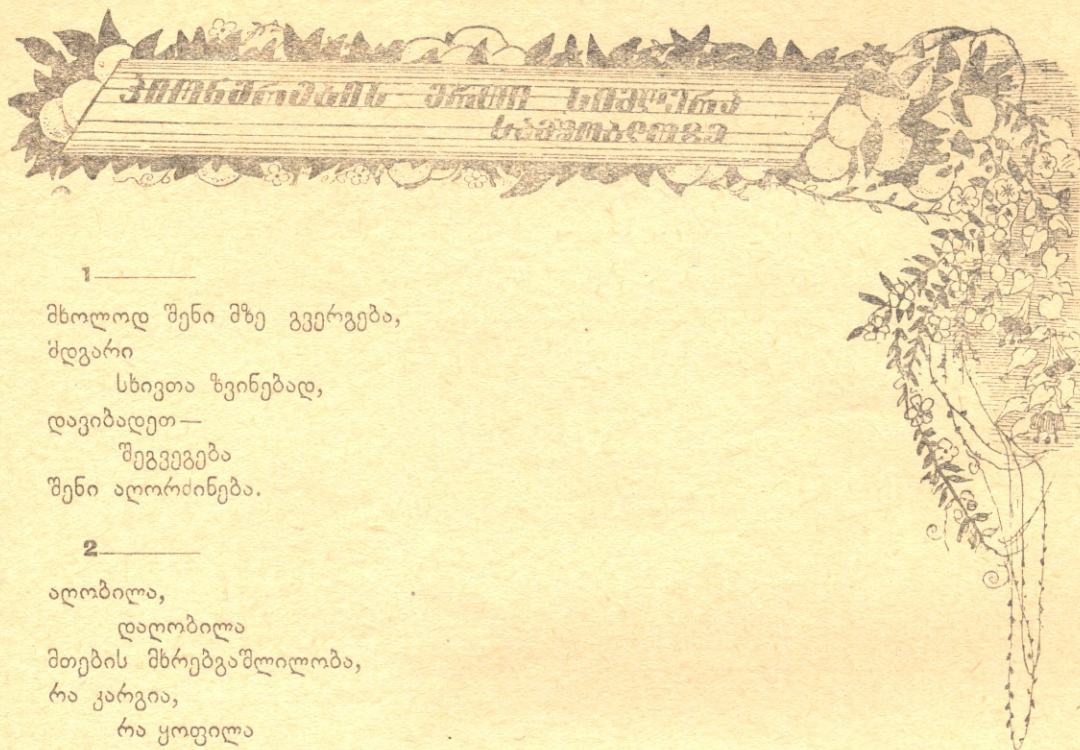 პიონერების ერთი სიმღერა
სამშობლოზე
1
მხოლოდ შენი მზე გვერგება,
მდგარი
სხივთა ზვინებად,
დავიბადეთ—
შეგვეგება
შენი აღორძინება.
2
აღობილა,
დაღობილა
მთების მხრებგაშლილობა,
რა კარგია,
რა ყოფილა